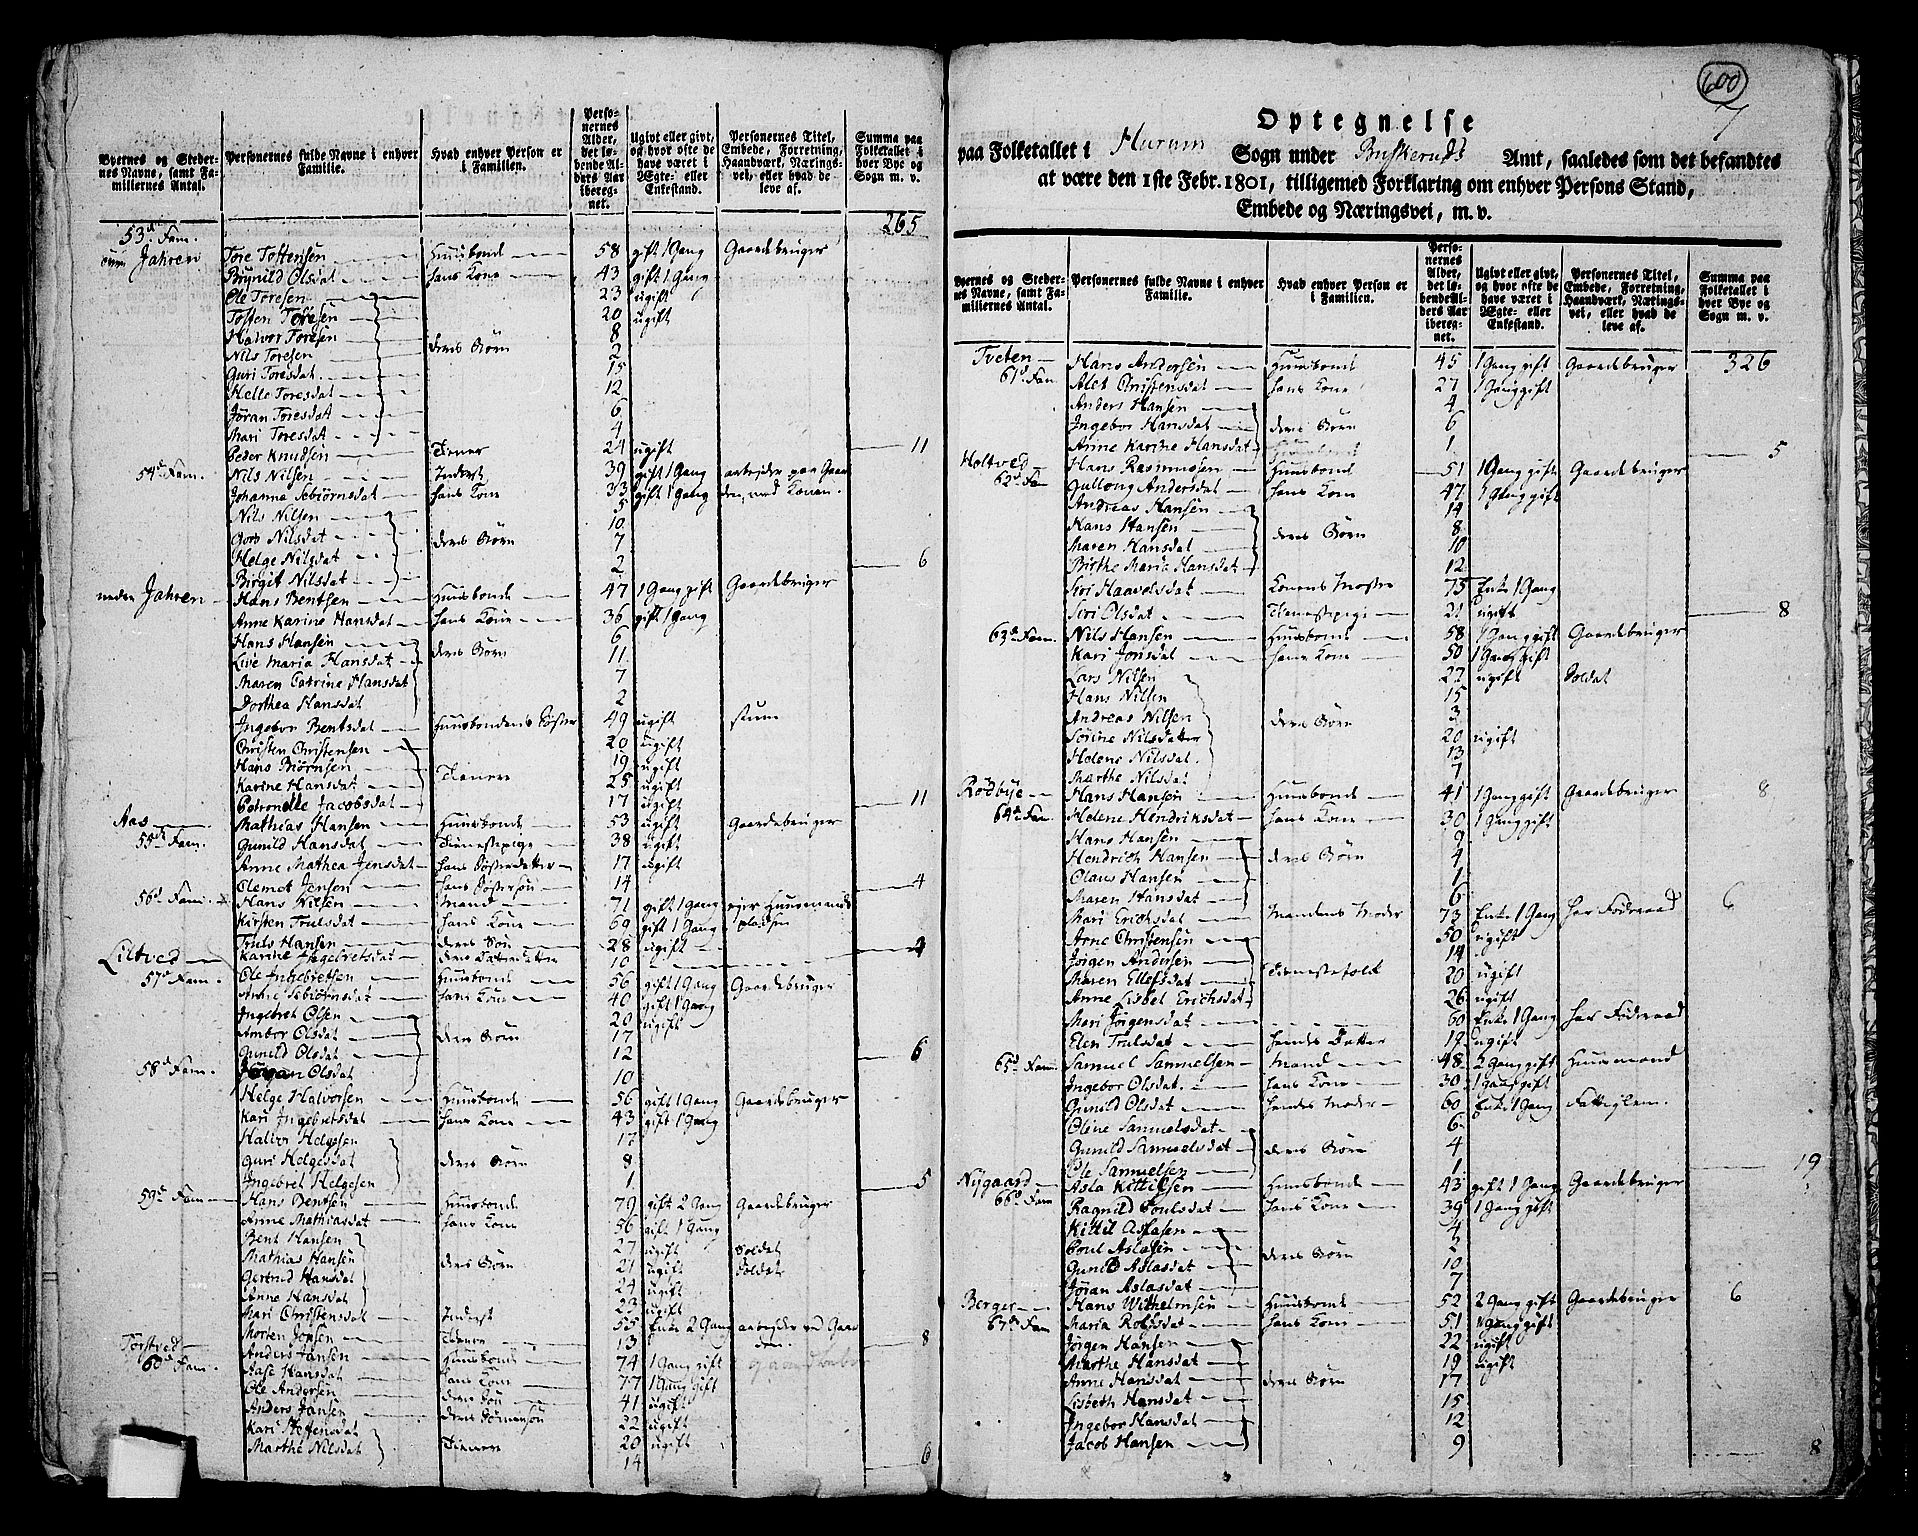 Byernes og Stedernes Navne, samt Familiernes Antal. | Personernes fulde Navne i enhver Familie. | Hvad enhver Person er i Familien. | Personernes Alder, det løbende Alders Aar iberegnet. | Ugivt eller givt, og hvor ofte de have været i Ægte- eller Enkestand. | Personernes Titel, Embede, Forretning, Haandværk, Næringsvei, eller hvad de leve af. | Summa paa Folketallet i hver Bye og Sogn m. v.
265
53de Fam.
Jahren Tore Tostensen Huusbonde 58 gift 1 Gang Gaardebruger
Brynild Olsdat hans Kone 43 gift 1 Gang
Ole Toresen 23 ugift
Tosten Toresen 20 ugift
Halvor Toresen 8
Nils Toresen deres Børn 2
Guri Toresdat 15
Helle Toresdat 12
Jøran Toresdat 6
Mari Toresdat 4
Peder Knudsen Tiener 24 ugift 11
54de Fam. Nils Nilsen Inderst 39 gift 1 Gang arbejder paa Gaar
Johanna Sebiørnsdat hans Kone 33 gift 1 Gang den med Konen.
Nils Nilsen 5
Goro Nilsdat 10
Helge Nilsdat deres Børn 7
Birgit Nilsdat 2 6
neder Jahren Hans Bentsen Huusbonde 47 1 Gang gift Gaardebruger
Anne Karine Hansdat hans Kone 36 gift 1 Gang
Hans Hansen 6
Live Maria Hansdat deres Børn 11
Maren Catrine Hansdat 7
Dorthea Hansdat 2
Ingebor Bentsdat Huusbondens Søster 49 ugift stum
Christen Christensen 20 ugift
Hans Biørnsen 19 ugift
Karine Hansdat Tienere 25 ugift
Petronelle Jacobsdat 17 ugift 11
Aas Mathias Hansen Huusbonde 53 ugift Gaardebruger
55de Fam. Gunild Hansdat Tienestepige 38 ugift
Anne Mathea Jensdat hans Søsterdatter 17 ugift
Clemet Jensen hans Søstersøn 14 4
56d Fam. Hans Nilsen Mand 71 gift 1 Gang ejer Huusmands
Kirsten Trulsdat hans Kone 69 gift 1 Gang pladsen
Truls Hansen deres Søn 28 ugift
Liltved Karine Ingebretsdat deres Datterdatter 10 4
57d Fam. Ole Ingebretsen Huusbonde 56 gift 1 Gang Gaardebruger
Anne Sebiørnsdat hans Kone 40 gift 1 Gang
Ingebret Olsen 20 ugift
Ambor Olsdat deres Børn 17
Gunild Olsdat 12 6
58d Fam. Jøran Olsdat 10
Helge Halvorsen Huusbonde 56 gift 1 Gang Gaardebruger
Kari Ingebretsdat hans Kone 43 gift 1 Gang
Halvor Helgesen 17
Guri Helgesdat deres Børn 8
Ingebret Helgesen 1 5
59d Fam. Hans Bentsen Huusbonde 79 gift 2 Gang Gaardebruger
Anne Mathiasdat hans Kone 56 gift 1 Gang
Bent Hansen 27 ugift Soldat
Mathias Hansen deres Børn 21 ugift Soldat
Gertrud Hansdat 24 ugift
Anne Hansdat 23 ugift
Mari Christensdat Inderst 55 Enke 2 Gang arbejder ved Gaar
Morten Jensen Tiener 13 den. 8
Torstved Anders Jansen Huusbonde 74 1 Gang gift
60de Fam. Aase Hansdat hans Kone 77 1 Gang gift
Ole Andersen deres Søn 41 ugift
Anders Jansen deres Sønnesøn 22 ugift
Kari Steffensdat 20 ugift
Marthe Nilsdat Tienere 14 6
600
7
Optegnelse
paa Folketallet i Hurum Sogn under Buskeruds Amt, saaledes som det befandtes
at være den 1ste Febr. 1801, tilligemed Forklaring om enhver Persons Stand,
Embede og Næringsvei, m. v.
Byernes og Stedernes Navne, samt Familiernes Antal. | Personernes fulde Navne i enhver Familie. | Hvad enhver Person er i Familien. | Personernes Alder, det løbende Alders Aar iberegnet. | Ugivt eller givt, og hvor ofte de have været i Ægte- eller Enkestand. | Personernes Titel, Embede, Forretning, Haandværk, Næringsvei, eller hvad de leve af. | Summa paa Folketallet i hver Bye og Sogn m. v.
Tveten Hans Andersen Huusbond 45 1 Gang gift Gaardebruger 326
61d Fam Alet Christensdat hans Kone 27 1 Gang gift
Anders Hansen 4
Ingebor Hansdat deres Børn 6
Anne Karine Hansdat 1 5
Holtved Hans Rasmusen Huusbond 51 1 Gang gift Gaardebruger
62d Fam Gullong Andersdat hans Kone 47 1 Gang gift
Andreas Hansen 14
Hans Hansen deres Børn 8
Maren Hansdat 10
Birthe Maria Hansdat 12
Siri Haavelsdat Konens Moster 75 Enke 1 Gang
Siri Olsdat Tienestepige 21 ugift 8
63d Fam. Nils Hansen Huusbonde 58 1 Gang gift Gaardebruger
Kari Jonsdat hans Kone 50 1 Gang gift
Lars Nilsen 22 ugift Soldat
Hans Nilsen 15
Andreas Nilsen deres Børn 3
Sørine Nilsdatter 20 ugift
Helene Nilsdat. 13
Marthe Nilsdat 7
Rødbye Hans Hansen Huusbonde 41 1 Gang gift Gaardebruger 8
64d Fam. Helene Hendriksdat hans Kone 30 1 Gang gift
Hans Hansen 9
Hendrich Hansen deres Børn 4
Olaus Hansen 1
Maren Hansdat 6
Mari Erichsdat Mandens Moder 73 Enke 1 Gang har Føderaad 6
Arne Christensen 50 ugift
Jørgen Andersen 14
Maren Ellefsdat Tienestefolk 20 ugift
Anne Lisbet Erichsdat 26 ugift
Mari Jørgensdat 60 Enke 1 Gang har Føderaad
Elen Trulsdat hendes Datter 19 ugift
65d Fam. Samuel Samuelsen Mand 48 2 Gang gift Huusmand
Ingebor Olsdat. hans Kone 30 1 Gang gift
Gunild Olsdat hendes Moder 60 Enke 1 Gang Fattiglem.
Oline Samuelsdat 6
Gunild Samuelsdat deres Børn 4
Ole Samuelsen 1 19
Nygaard Asla Kittilsen Huusbonde 43 gift 1 Gang Gaardebruger
66d Fam Ragnild Poulsdat hans Kone 39 1 Gang gift
Kittil Aslasen 4
Poul Aslasen deres Børn 2
Gunild Aslasdat 10
Jøran Aslasdat 7
Berger Hans Wilhelmsen Huusbonde 52 2 Gang gift Gaardebruger 6
67de Fam Maria Robsdat hans Kone 51 1 Gang gift
Jørgen Hansen 22 ugift
Marthe Hansdat 19 ugift
Anne Hansdat deres Børn 17
Lisbeth Hansdat 15
Ingebor Hansdat 12
Jacob Hansen 9 8